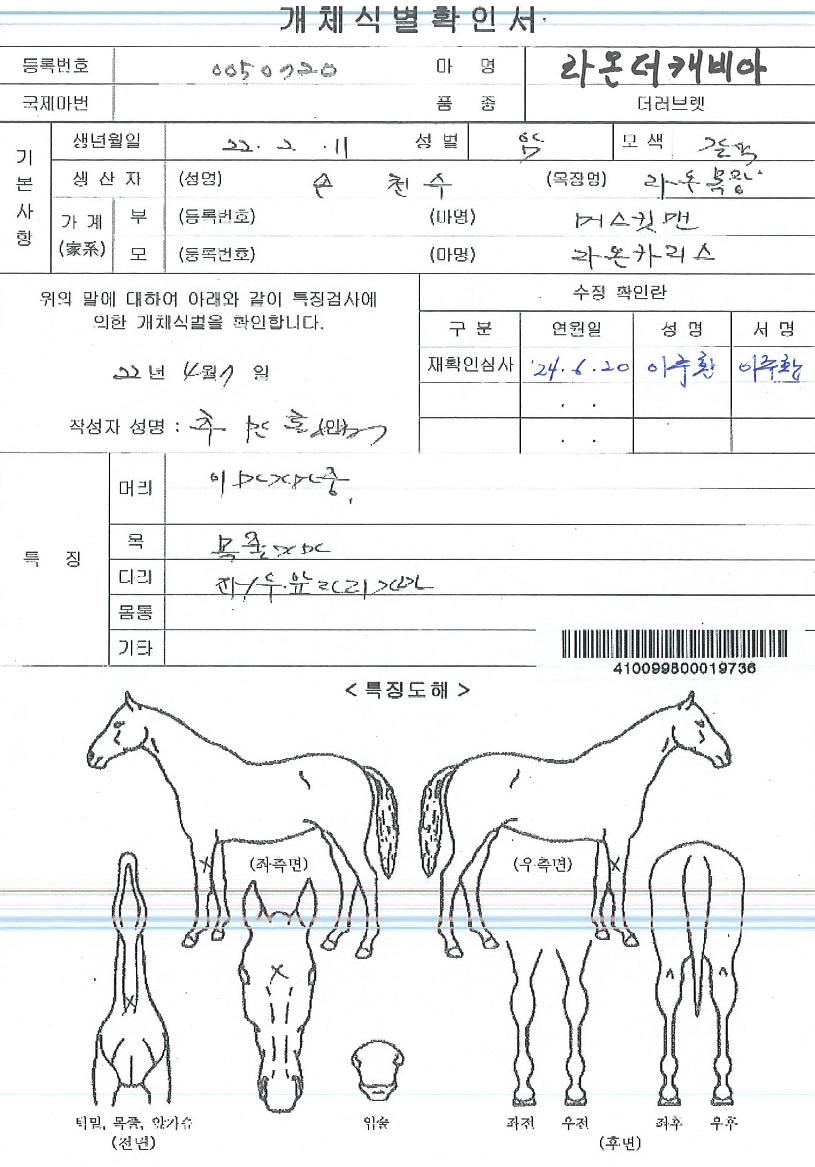 개체식별확인서
등록번호 0050720 마 명 라온더캐비아
국제마번 품 종 더러브렛
기본사항 생년월일 22. 2. 11 성 별 암 모 색 갈색
생 산 자 (성명) 손 천 수 (목장명) 라온목장
가 계 (家系) 부 (등록번호) (마명) 머스킷맨
모 (등록번호) (마명) 라온카리스
위의 말에 대하여 아래와 같이 특징검사에
의한 개체식별을 확인합니다.
22년 4월 7일
작성자 성명 :
수정 확인란
구 분 연월일 성 명 서 명
재확인심사 '24. 6. 20 이주환 이주환
. .
. .
특 징
머리
목
다리
몸통
기타
410099800019736
< 특징도해 >
(좌측면) (우측면)
턱밑, 목줄, 앞가슴 입술 좌전 우전 좌후 우후
(전면) (후면)